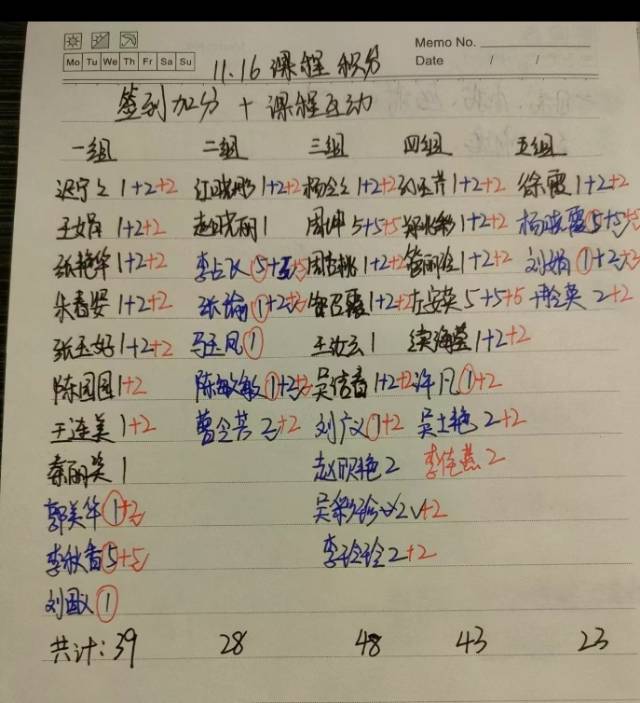 Memo No.
Mo Tu We Th Fr Sa Su Date / /
11.16 课程积分
签到加分 + 课程互动
一组 二组 三组 四组 五组
1+2+2 1+2+2 1+2+2 1+2+2 徐霞 1+2+2
王娟 1+2+2 赵晓丽 1 周坤 5+5+5 1+2+2 杨晓霞 5+5+5
张艳华 1+2+2 李占文 5+5+5 1+2+2 1+2+2 刘娟 1+2+2
朱春婴 1+2+2 张瑜 1+2+2 1+2+2 5+5+5 2+2
张玉好 1+2+2 马玉凤 1 王汝云 1 1+2+2
陈园园 1+2 陈敏敏 1+2+2 吴信香 1+2+2 许凡 1+2
王连美 1+2 曹会芳 2+2 刘广义 1+2 吴士艳 2+2
秦丽笑 1 赵欣艳 2 李佳燕 2
郭美华 1+2 2+2
李秋香 5+5 李玲玲 2+2
刘国义 1
共计: 39 28 48 43 23